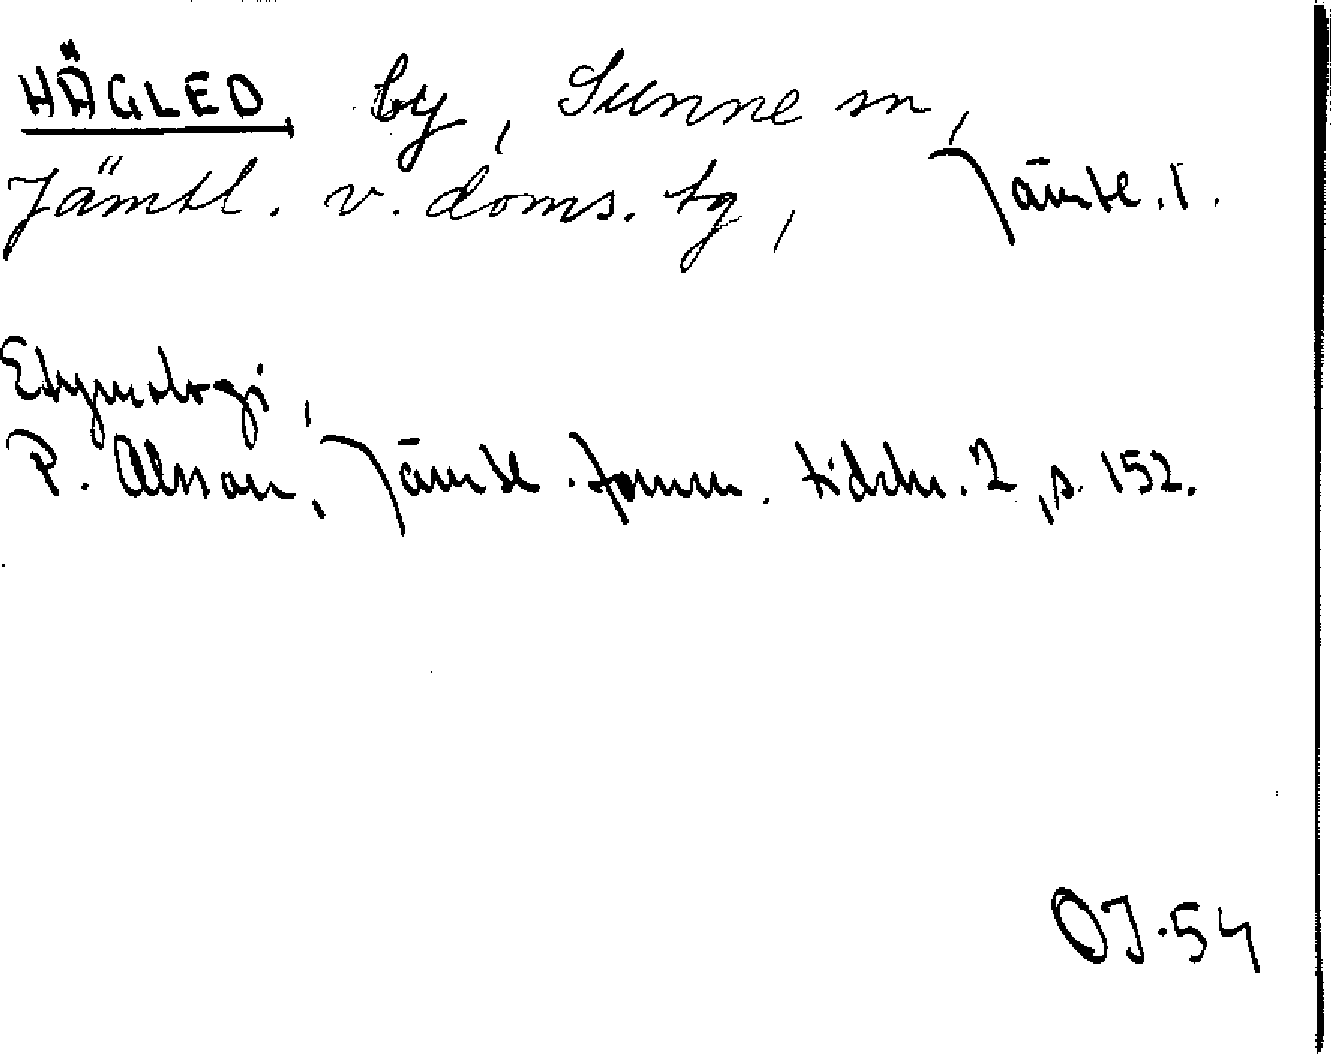 HÄGLED, by, Sunne sn,
Jämtl. v. doms. tg, Jämtl. l.
Etymologi,
P. Olsson, Jämtl. fornm. tidskr. 2, s. 152.
OJ. 54